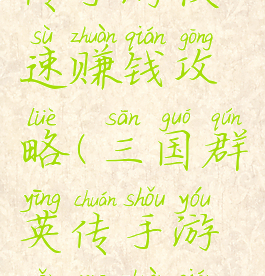 sù zhuàn qián gōng
速赚钱攻
lüè sān guó qún
略(三国群
yīng chuán shǒu yóu
英传手游